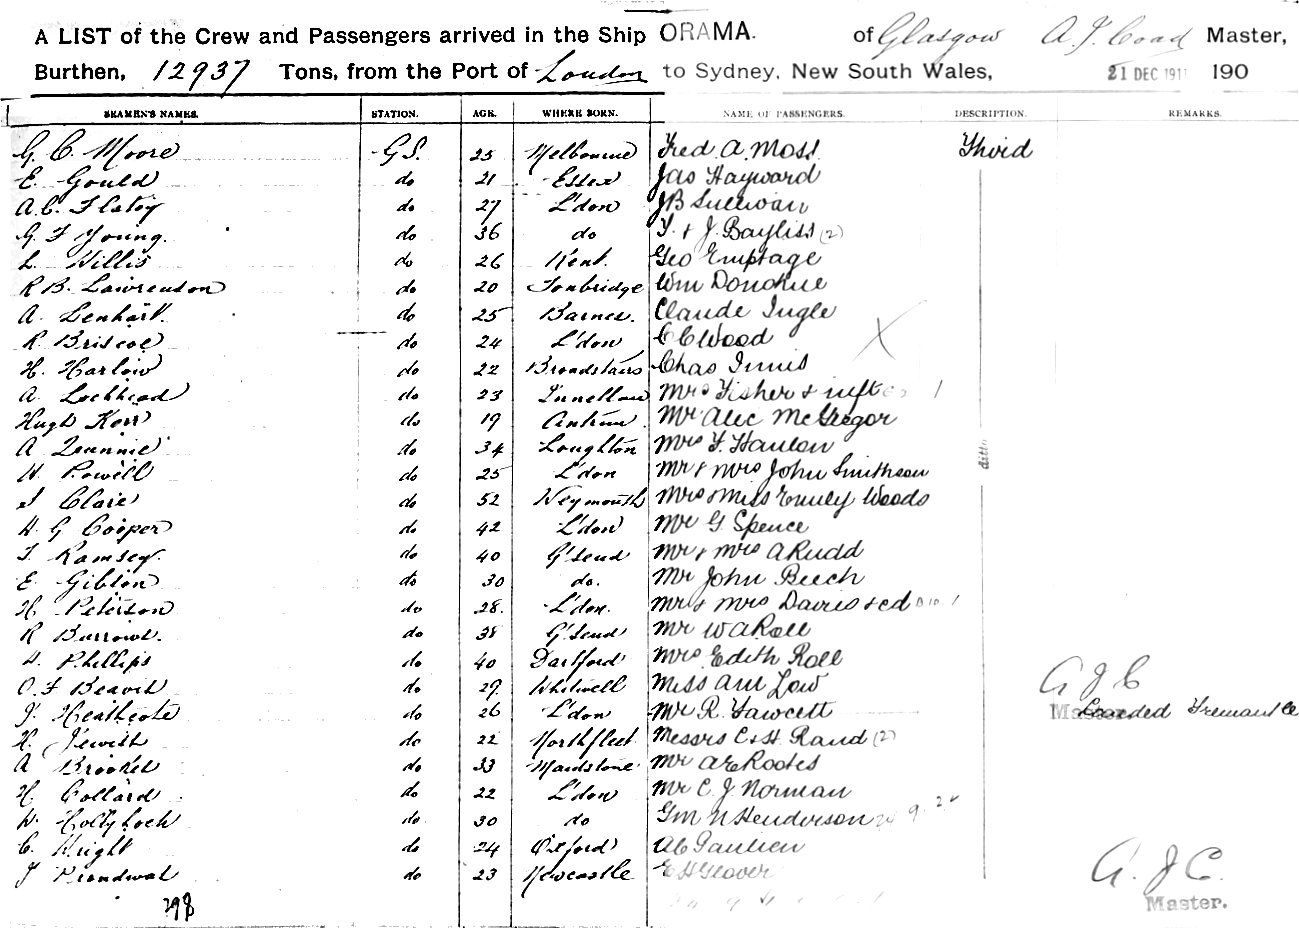 A LIST of the Crew and Passengers arrived in the Ship ORAMA. of Glasgow A. J. Coad Master,
Burthen, 12937 Tons, from the Port of London to Sydney, New South Wales, 21 DEC 1911 190
SEAMEN'S NAMES. STATION. AGE. WHERE BORN. NAME OF PASSENGERS. DESCRIPTION. REMARKS.
G. C. Moore G.S. 25 Melbourne Fred A. Moss Third
E. Gould do 21 Essex Jas Hayward
A.C. do 27 L'don JB Sullivan
G F Young. do 36 do T. & J. Bayliss (2)
L. Willis do 26 Kent. Geo Emptage
R B. Lawrenson do 20 Tonbridge Wm Donohue
A. Lenhart. do 25 Barnes. Claude Ingle
R. Briscoe do 24 L'don C C Wood
H. Harlow do 22 Broadstairs Chas Innis
A. Lockhead do 23 Mrs Fisher & inft 1
Hugh Kerr do 19 Antrim Mr Alec McGregor
A do 34 Loughton Mrs F. Hanlon ditto
W. Powell do 25 L'don Mr & Mrs John Smithson
Clare do 52 Weymouth Mrs & Miss Emily Woods
H. G Cooper do 42 L'don Mr G Spence
T. Ramsey. do 40 G'send Mr & Mrs A Rudd
E. Gibson do 30 do. Mr John Beech
H. Peterson do 28. L'don. Mr & Mrs Davies & cd
R Burrows. do 38 G'send Mr W A Roll
H. Phillips do 40 Dartford Mrs Edith Roll
O. F Beavis do 29 Whitwell Miss Low A J C
J. Heathcote do 26 L'don Mr R. Fawcett Master Landed Fremantle
H. Jewish do 22 Northfleet Messrs C & H. Rand (2)
A Brooker do 33 Maidstone Mr A E Rootes
H Collard do 22 L'don Mr C. J. Norman
W. Hollyhock do 30 do N Henderson
C. Wright do 24 Oxford A C Paulien
J do 23 Newcastle E H Glover A. J C.
298 Master.